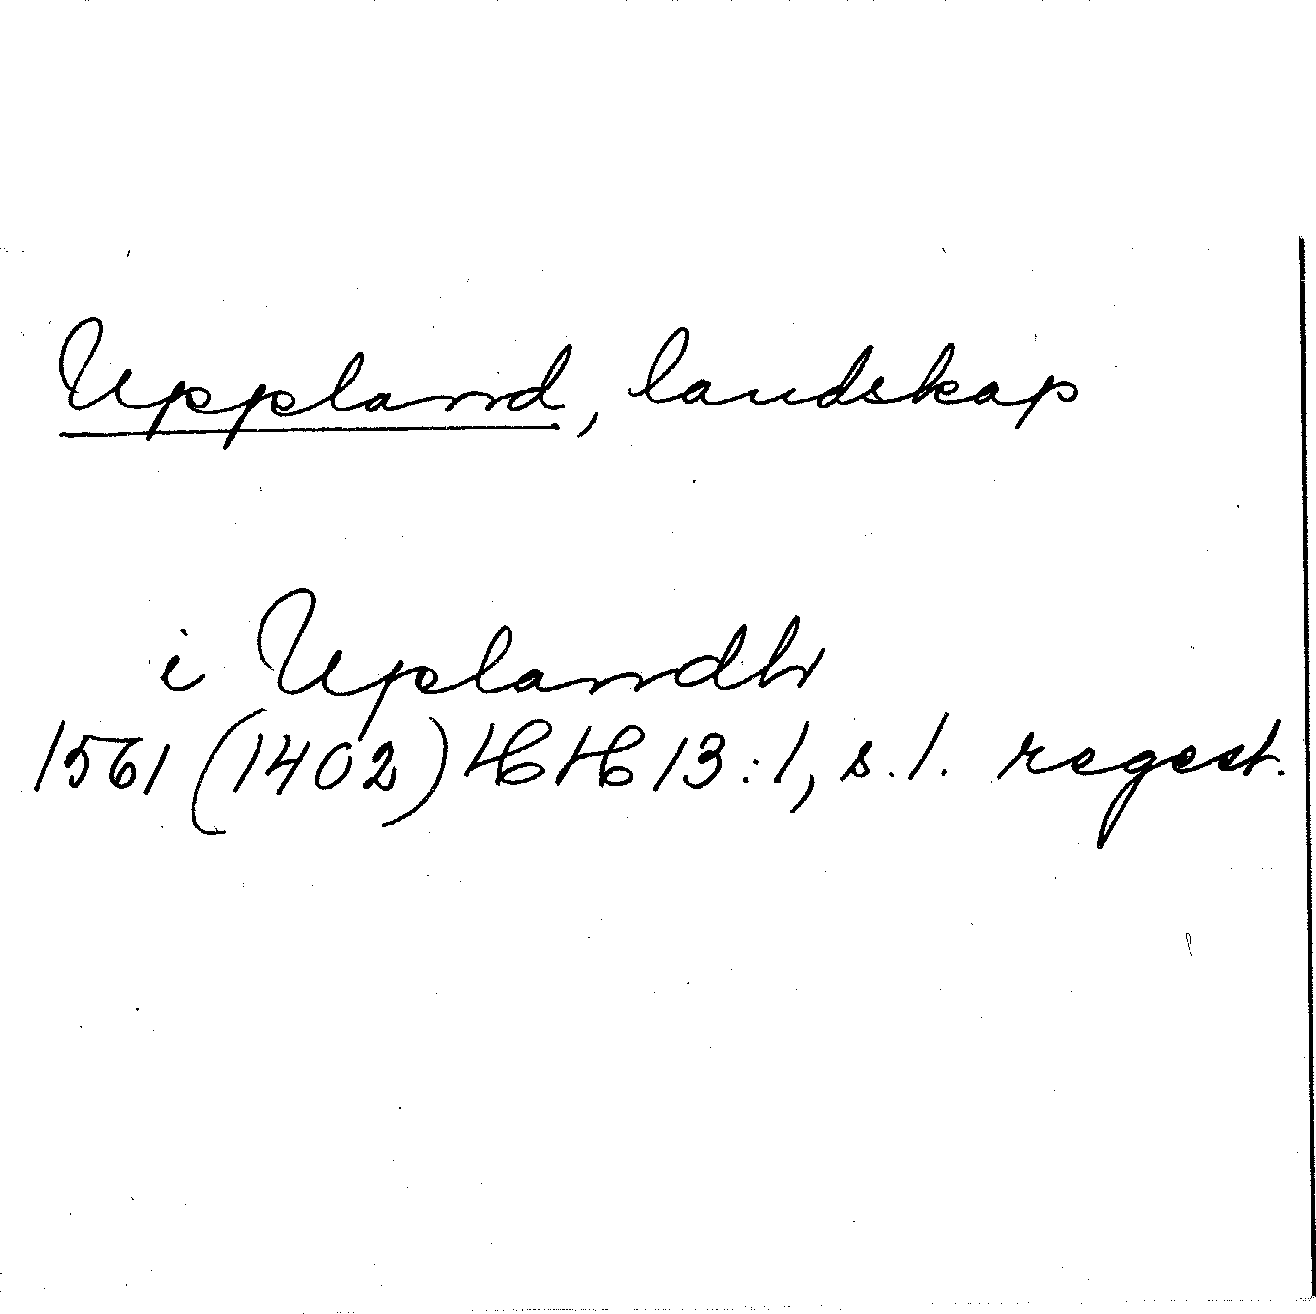 Uppland, landskap
i Uplandh
1561 (1402) HH 13:1, s. 1. regest.